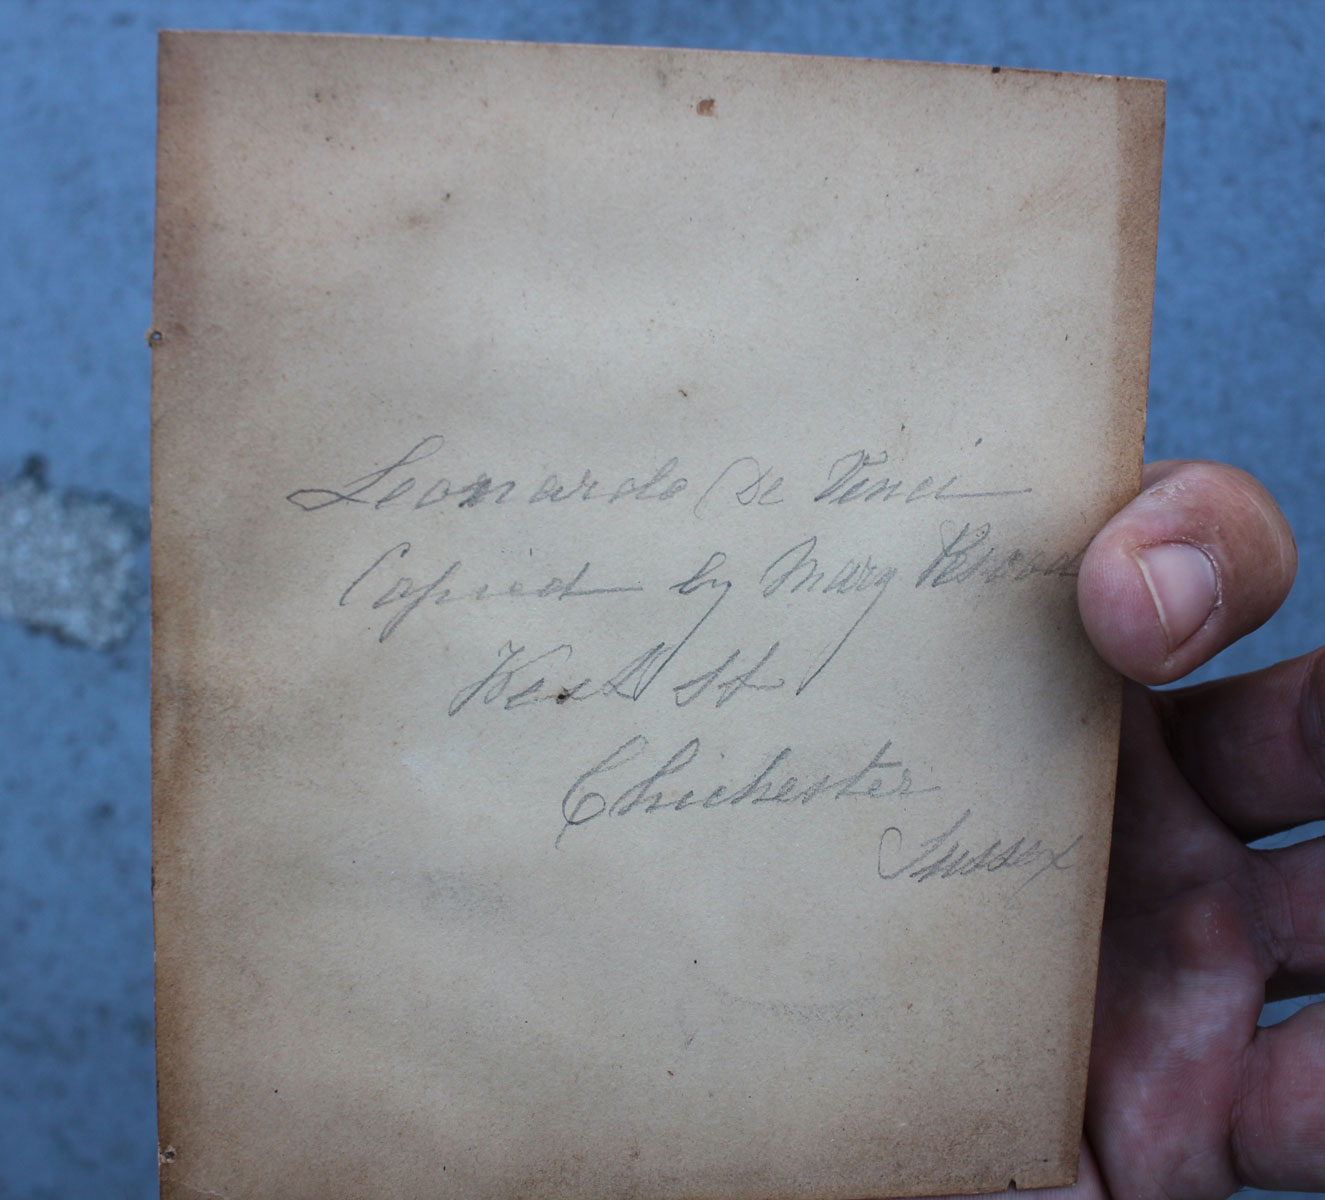 Leonardo De Vinci
Copied by Mary
West St
Chichester
Sussex